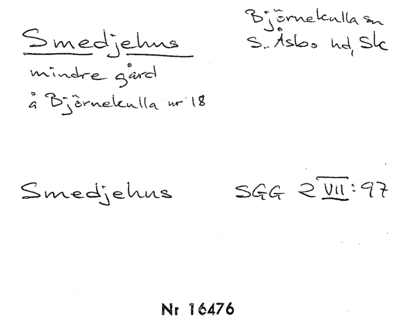 Smedjehus
Björnekulla sn
S. Åsbo hd, Sk
mindre gård
å Björnekulla nr 18
Smedjehus
SGG 2 VII:97
Nr 16476